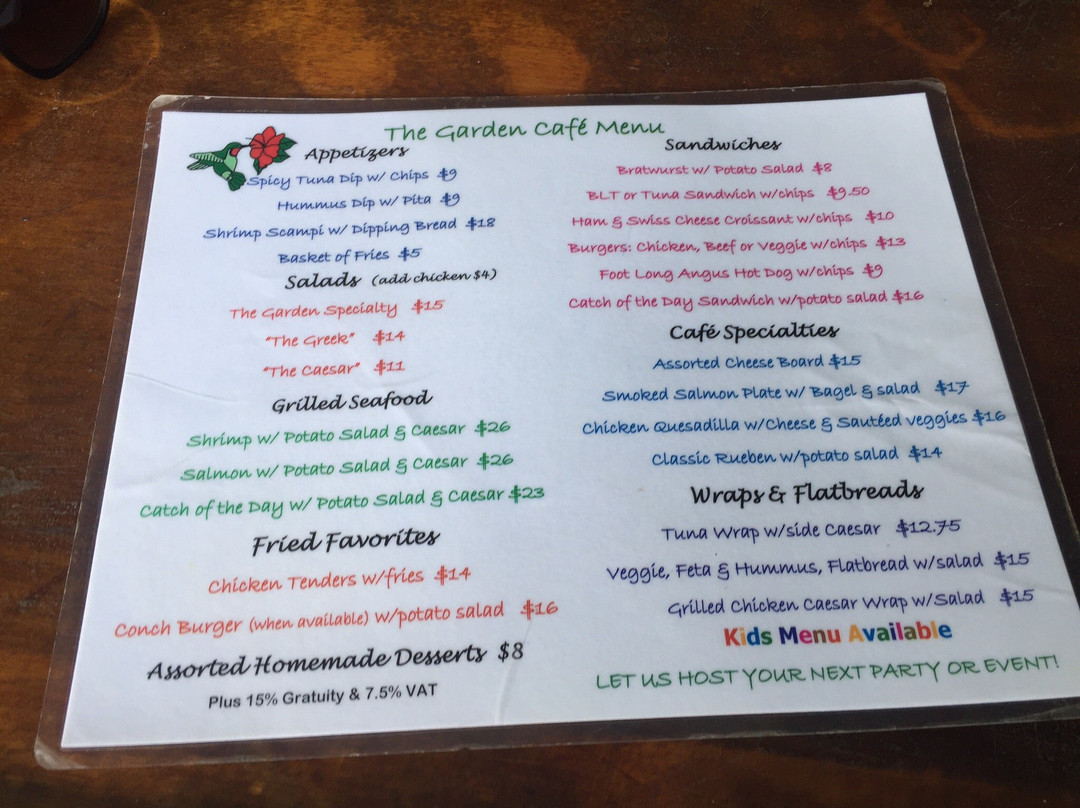 The Garden Café Menu
Appetizers
Spicy Tuna Dip w/ Chips $9
Hummus Dip w/ Pita $9
Shrimp Scampi w/ Dipping Bread $18
Basket of Fries $5
Salads (add chicken $4)
The Garden Specialty $15
"The Greek" $14
"The Caesar" $11
Grilled Seafood
Shrimp w/ Potato Salad & Caesar $26
Salmon w/ Potato Salad & Caesar $26
Catch of the Day w/ Potato Salad & Caesar $23
Fried Favorites
Chicken Tenders w/fries $14
Conch Burger (when available) w/potato salad $16
Assorted Homemade Desserts $8
Plus 15% Gratuity & 7.5% VAT
Sandwiches
Bratwurst w/ Potato Salad $8
BLT or Tuna Sandwich w/chips $9.50
Ham & Swiss Cheese Croissant w/chips $10
Burgers: Chicken, Beef or Veggie w/chips $13
Foot Long Angus Hot Dog w/chips $9
Catch of the Day Sandwich w/potato salad $16
Café Specialties
Assorted Cheese Board $15
Smoked Salmon Plate w/ Bagel & salad $17
Chicken Quesadilla w/Cheese & Sautéed veggies $16
Classic Rueben w/potato salad $14
Wraps & Flatbreads
Tuna Wrap w/side Caesar $12.75
Veggie, Feta & Hummus, Flatbread w/salad $15
Grilled Chicken Caesar Wrap w/Salad $15
Kids Menu Available
LET US HOST YOUR NEXT PARTY OR EVENT!